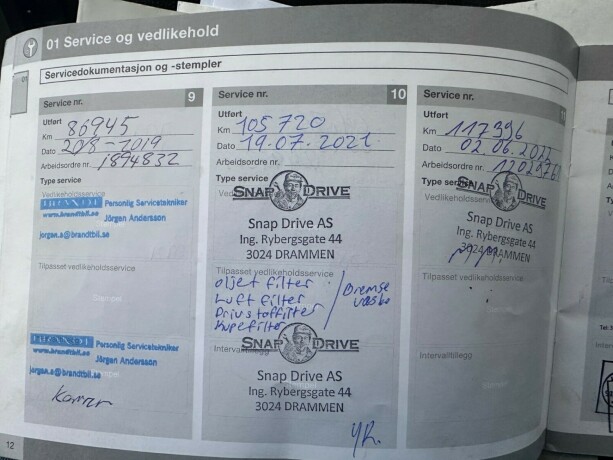 01 Service og vedlikehold
01
Servicedokumentasjon og -stempler
Service nr. 9
Utført
Km 86945
Dato 20/8-2019
Arbeidsordre nr. 1894832
Type service
Vedlikeholdsservice
BRANDT Personlig Servicetekniker
www.brandtbil.se Jörgen Andersson
jorgen.a@brandtbil.se
Tilpasset vedlikeholdsservice
Stempel
BRANDT Personlig Servicetekniker
www.brandtbil.se Jörgen Andersson
jorgen.a@brandtbil.se
12
Service nr. 10
Utført
Km 105720
Dato 19.07.2021
Arbeidsordre nr.
Type service
SNAP DRIVE
Snap Drive AS
Ing. Rybergsgate 44
3024 DRAMMEN
Tilpasset vedlikeholdsservice
oljet filter
Luft filter
Drivstoffilter
Kupefilter
/ Bremse
væske
SNAP DRIVE
Intervalltillegg
Snap Drive AS
Ing. Rybergsgate 44
3024 DRAMMEN
Service nr. 11
Utført
Km 117396
Dato 02.06.2022
Arbeidsordre nr.
Type service
SNAP DRIVE
Vedlikeholdsservice
Snap Drive AS
Ing. Rybergsgate 44
3024 DRAMMEN
Tilpasset vedlikeholdsservice
Intervalltillegg